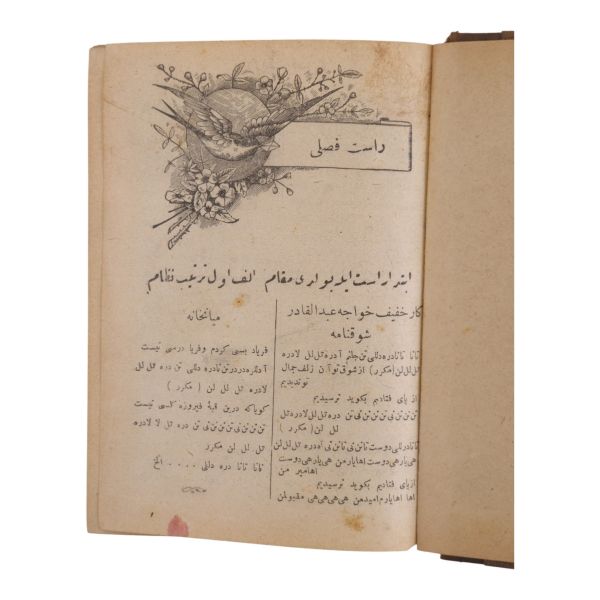 راست فصلی
ابتدا راست ایله بو اری مقام الف اول ترتیب نظام
کار خفیف خواجه عبدالقادر
شوقنامه
تانا تانادره دللی تن جانم آ دره تلل لادره
تلل لن (مکرر) از شوق تو آن زلف جمال
تو ندیدیم
از پای فتادیم بکوید نرسیدیم
تن تن نی تن تن تن نی تن دره تل لل لادره تل
لل لن ( مکرر )
تانادرللی دوست تانن نی تانن نی آه دره تل لل لن
هی یار هی دوست اها یار من هی یار هی دوست
اها میر من
از پای فتادیم بکوید نرسیدیم
اها اها یارم امیدمن هی هی هی هی مقبولمن
میانخانه
فریاد بسی کردم و فریاد رسی نیست
آ دره دردر تن نادره دللی تن دره تل لل
لادره تل لل لن ( مکرر )
کویا که درین قبهٔ فیروزه کسی نیست
تن تن نی تن تن تن نی تن دره تل لا لادره
تل لل لن مکرر
تانا تانا دره دللی . . . . الخ